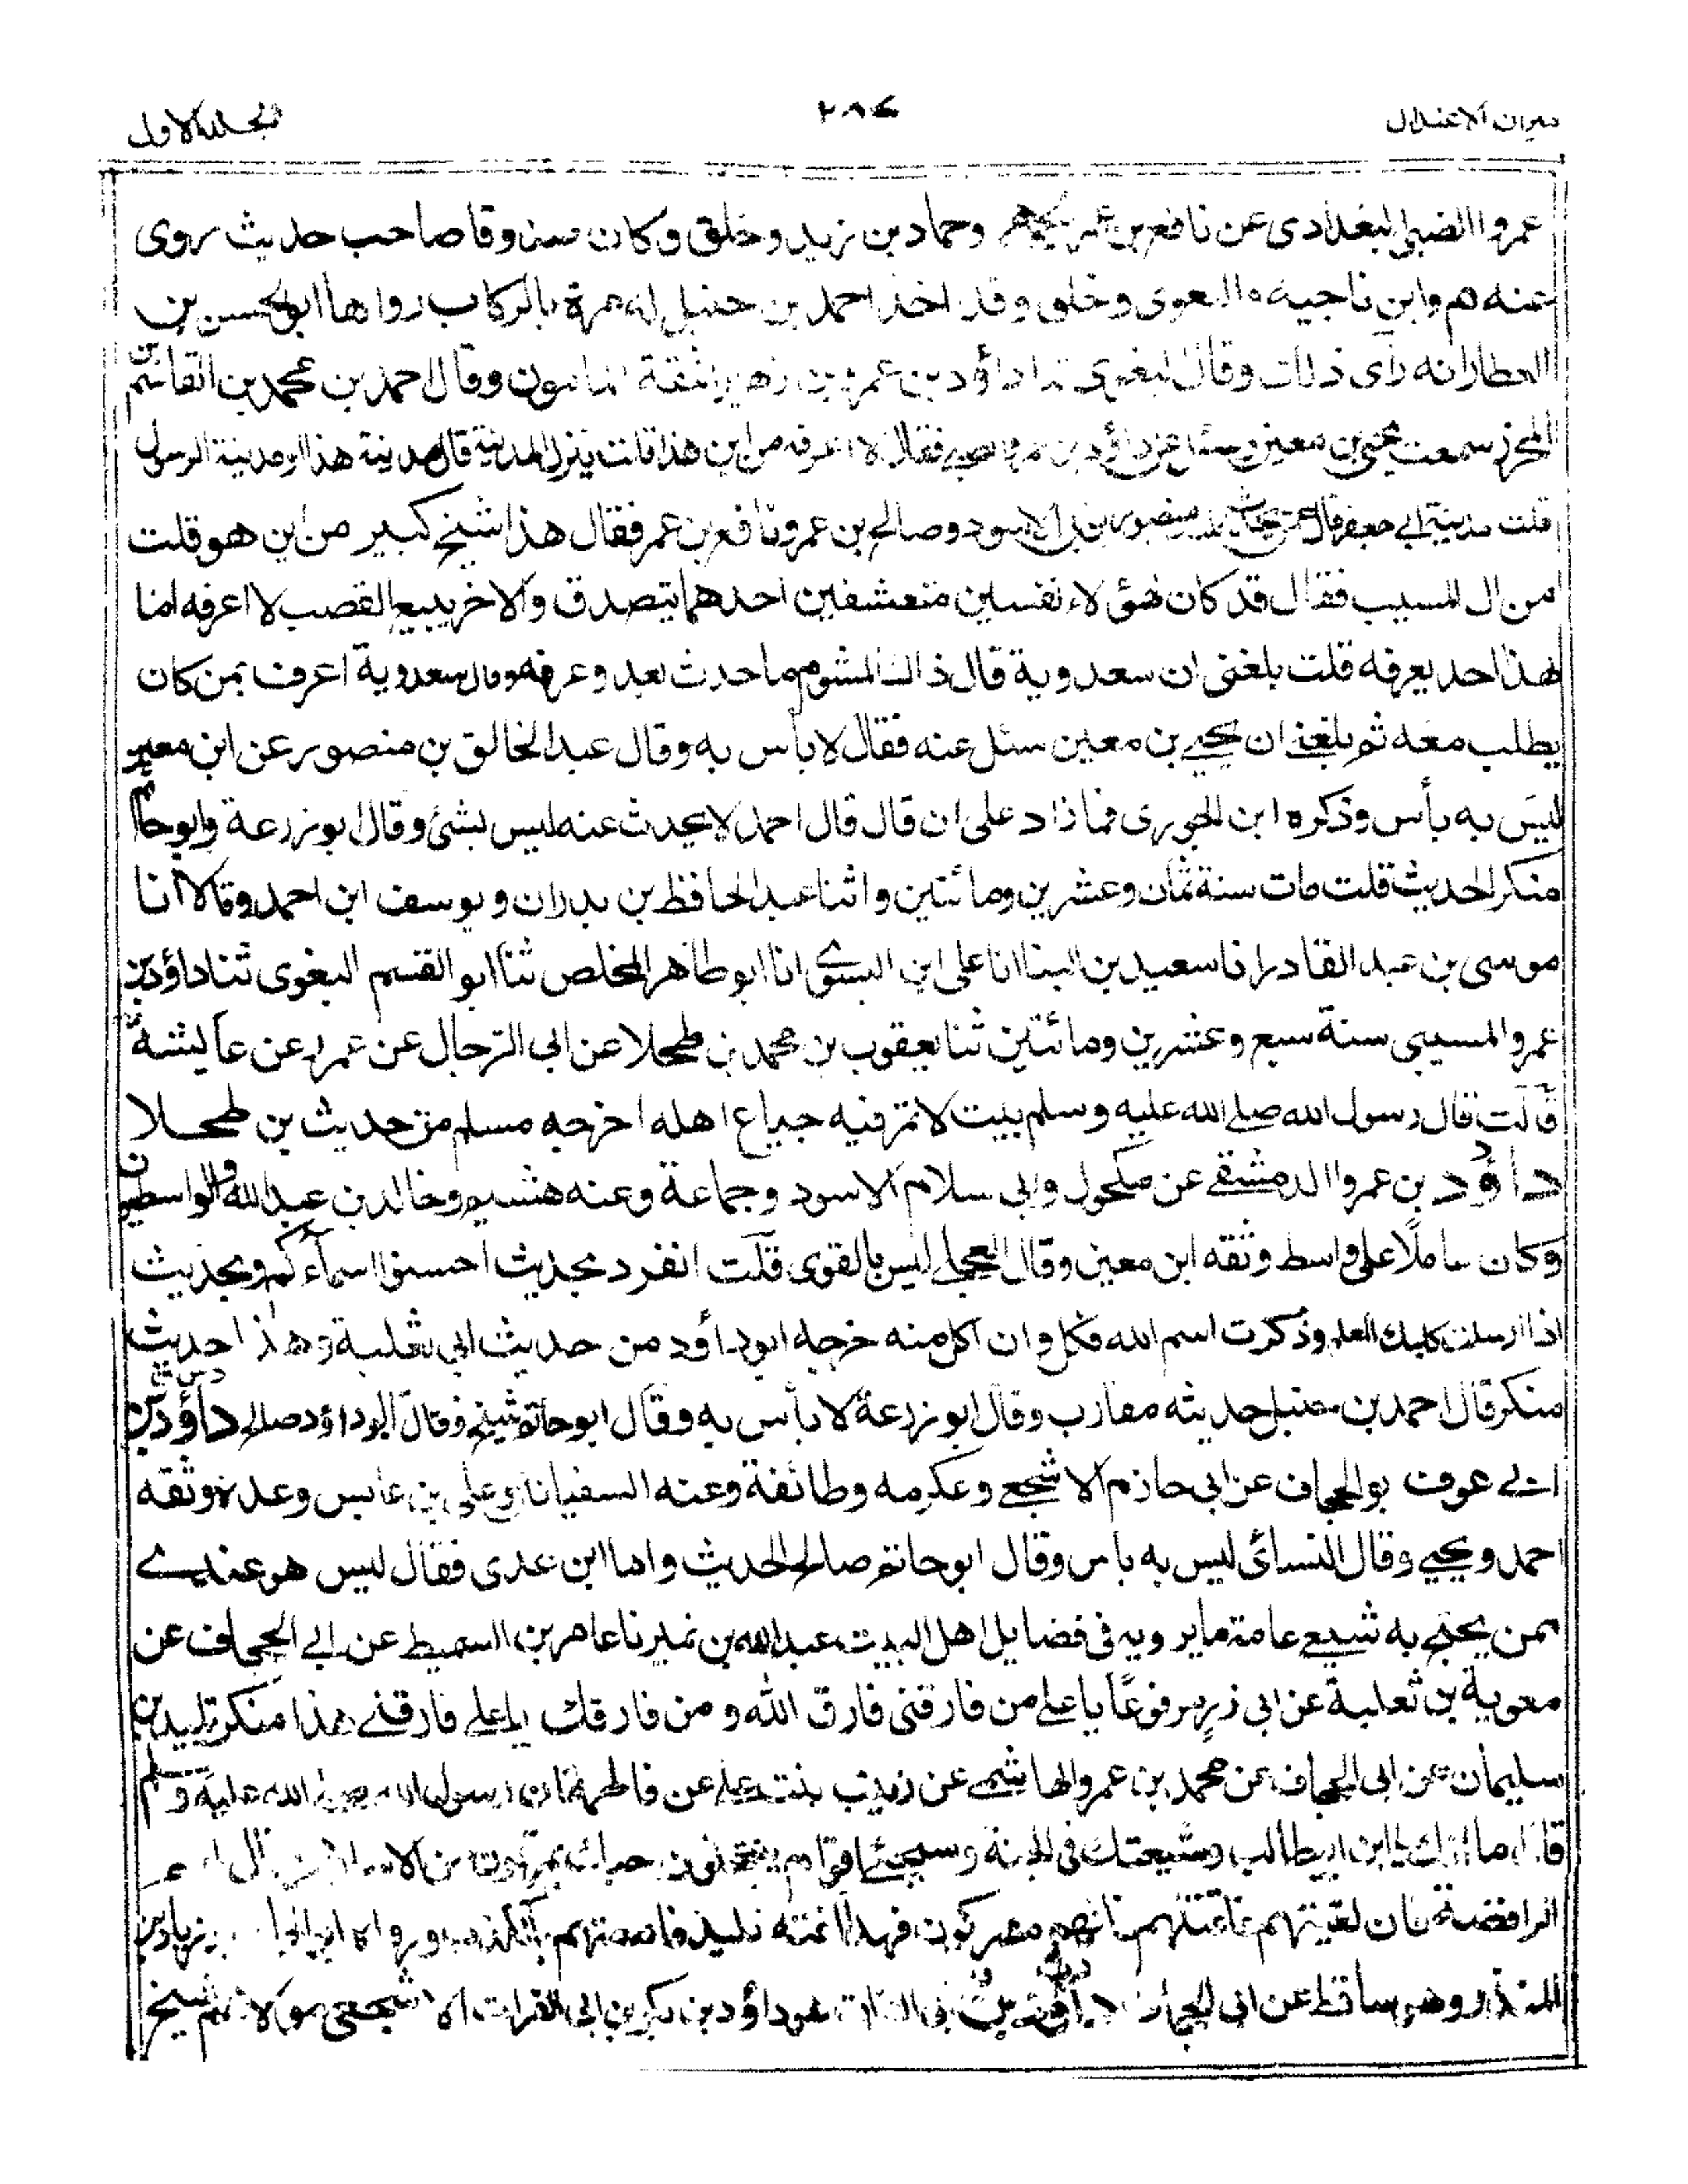 ميزان الاعتدال ٢٨٤ المجلد الاول
عمرو الضبى البغدادى عن نافع بن عمر الجمحى وحماد بن زيد وخلق وكان صدوقا صاحب حديث روى
عنه م وابن ناجيه والبغوى وخلق وقد اخذ احمد بن حنبل له مرة بالركاب رواها ابو الحسن بن
العطار انه رأى ذلك وقال البغوى ثنا داؤد بن عمرو بن زهير الثقة المامون وقال احمد بن محمد بن القاسم بن
المحرز سمعت يحيى بن معين وسئل عن داؤد بن عمرو فقال لا اعرفه من اين هذا قلت ينزل المدينة قال مدينة هذا او مدينة الرسول
قلت مدينة ابى جعفر قال عمن يحدث قلت منصور بن الاسود وصالح بن عمرو نافع بن عمر فقال هذا شيخ كبير من اين هو قلت
من ال المسيب فقال قد كان لهؤلاء نفسين متعشفين احدهما يتصدق والاخر يبيع القصب لا اعرفه اما
لهذا احد يعرفه قلت بلغنى ان سعدوية قال ذاك المشوم ما حدث بعد وعرفه وقال سعدوية اعرف بمن كان
يطلب معه ثم بلغنى ان يحيى بن معين سئل عنه فقال لا بأس به وقال عبد الخالق بن منصور عن ابن معين
ليس به بأس وذكره ابن الجوزى فما زاد على ان قال قال احمد لا يحدث عنه ليس بشئ وقال ابو زرعة وابو حاتم
منكر الحديث قلت مات سنة ثمان وعشرين ومائتين واثنا عبد الحافظ بن بدران ويوسف ابن احمد وقالا انا
موسى بن عبد القادر انا سعيد بن البنا انا على ابن البسرى انا ابو طاهر المخلص ثنا ابو القسم البغوى ثنا داؤد بن
عمرو المسيبى سنة سبع وعشرين ومائتين ثنا يعقوب بن محمد بن طحلا عن ابى الرجال عن عمرة عن عايشه
قالت قال رسول الله صلى الله عليه وسلم بيت لا تمر فيه جياع اهله اخرجه مسلم من حديث بن طحلا
داؤد بن عمرو الدمشقى عن مكحول وابى سلام الاسود وجماعة وعنه هشيم وخالد بن عبد الله الواسطيان
وكان عاملا على واسط وثقه ابن معين وقال العجلى ليس بالقوى قلت انفرد بحديث احسنوا اسماءكم وبحديث
اذا ارسلت كلبك المعلم وذكرت اسم الله فكل وان اكل منه خرجه ابو داؤد من حديث ابى ثعلبة وهذا حديث
منكر قال احمد بن حنبل حديثه مقارب وقال ابو زرعة لا بأس به وقال ابو حاتم شيخ وقال ابو داؤد صالح داؤد بن
ابى عوف ابو الجحاف عن ابى حازم الاشجعى وعكرمه وطائفة وعنه السفيانان وعلى بن عابس وعدة وثقه
احمد ويحيى وقال النسائى ليس به باس وقال ابو حاتم صالح الحديث واما ابن عدى فقال ليس هو عندى
ممن يحتج به شيعى عامة ما يرويه فى فضايل اهل البيت عبد الله بن نمير نا عامر بن السميط عن ابى الجحاف عن
معوية بن ثعلبة عن ابى ذر مرفوعًا يا على من فارقنى فارق الله ومن فارقك يا على فارقنى هذا منكر تليد بن
سليمان عن ابى الجحاف عن محمد بن عمرو الهاشمى عن زينب بنت على عن فاطمة ان رسول الله صلى الله عليه وسلم
قال اما انك يا ابن ابى طالب وشيعتك فى الجنة وسيجئ اقوام ينتحلون حبك يمرقون من الاسلام يقال لهم
الرافضة فان لقيتهم فاقتلهم فانهم مشركون فهذا افته تليد فانه متهم بالكذب ورواه ابو الجارود زياد بن
المنذر وهو ساقط عن ابى الجحاف داؤد بن ابى الفرات هو داؤد بن بكر بن ابى الفرات الاشجعى مولاهم شيخ